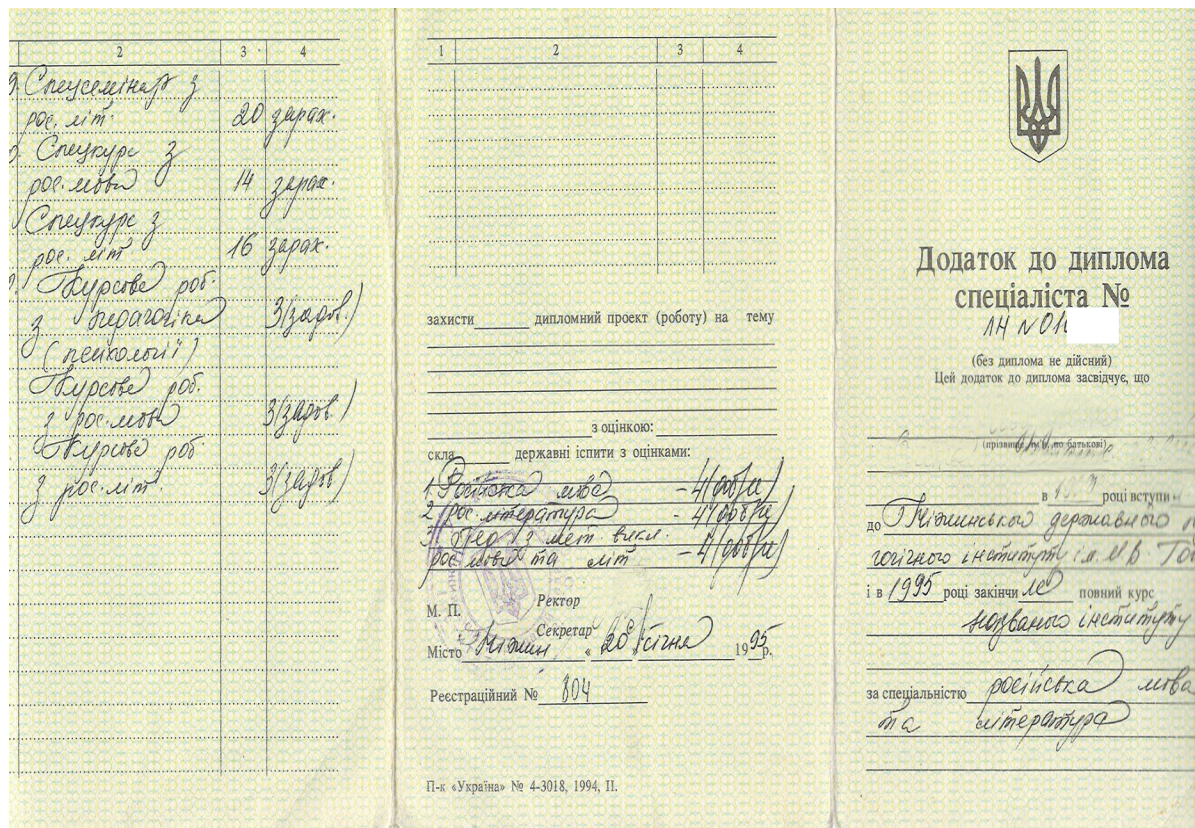 2 3 4
Спецсемінар з
рос. літ. 20 зарах.
Спецкурс з
рос. мови 14 зарах.
Спецкурс з
рос. літ 16 зарах.
Курсова роб.
з педагогіки 3(задов.)
(психології)
Курсова роб.
з рос. мови 3(задов.)
Курсова роб
з рос. літ. 3(задов)
1 2 3 4
захисти дипломний проект (роботу) на тему
з оцінкою:
скла державні іспити з оцінками:
1. Російска мова - 4(
2. рос. література - 4(
3. Пед. з мет. викл.
рос мови та літ - 4(
М. П. Ректор
Секретар
Місто Ніжин « 20 » січня 1995р.
Реєстраційний № 804
П-к «Україна» № 4-3018, 1994, II.
Додаток до диплома
спеціаліста №
ЛН № 01
(без диплома не дійсний)
Цей додаток до диплома засвідчує, що
(прізвище, ім'я, по батькові)
в році вступи
до Ніжинського державного
гогічного інституту ім. М В. Го
і в 1995 році закінчила повний курс
названого інституту
за спеціальністю російська мова
та література